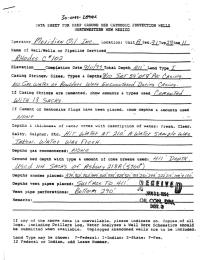 30-045-28902
DATA SHEET FOR DEEP GROUND BED CATHODIC PROTECTION WELLS
NORTHWESTERN NEW MEXICO
Operator Meridian Oil Inc. Location: Unit A Sec. 31 Twp 28 Rng 11
Name of Well/Wells or Pipeline Serviced
Rhodes C #102
Elevation Completion Date 9/11/93 Total Depth 411' Land Type F
Casing Strings, Sizes, Types & Depths 9/10 Set 59' of 8" PVC Casing.
No Gas, Water, or Boulders Were Encountered During Casing.
If Casing Strings are cemented, show amounts & types used Cemented
With 13 Sacks
If Cement or Bentonite Plugs have been placed, show depths & amounts used
None
Depths & thickness of water zones with description of water: Fresh, Clear,
Salty, Sulphur, Etc. Hit Water at 210' A Water Sample Was
Taken. Water Was Fresh.
Depths gas encountered: None
Ground bed depth with type & amount of coke breeze used: 411' Depth
Used 110 Sacks of Asbury 218R (5500#)
Depths anodes placed:
Depths vent pipes placed: Surface To 411'
Vent pipe perforations: Bottom 290'
Remarks:
RECEIVED
OIL CON. DIV.
DIST. 3
If any of the above data is unavailable, please indicate so. Copies of all
logs, including Drillers Log, Water Analyses & Well Bore Schematics should
be submitted when available. Unplugged abandoned wells are to be included.
Land Type may be shown: F-Federal; I-Indian; S-State; P-Fee.
If Federal or Indian, add Lease Number.